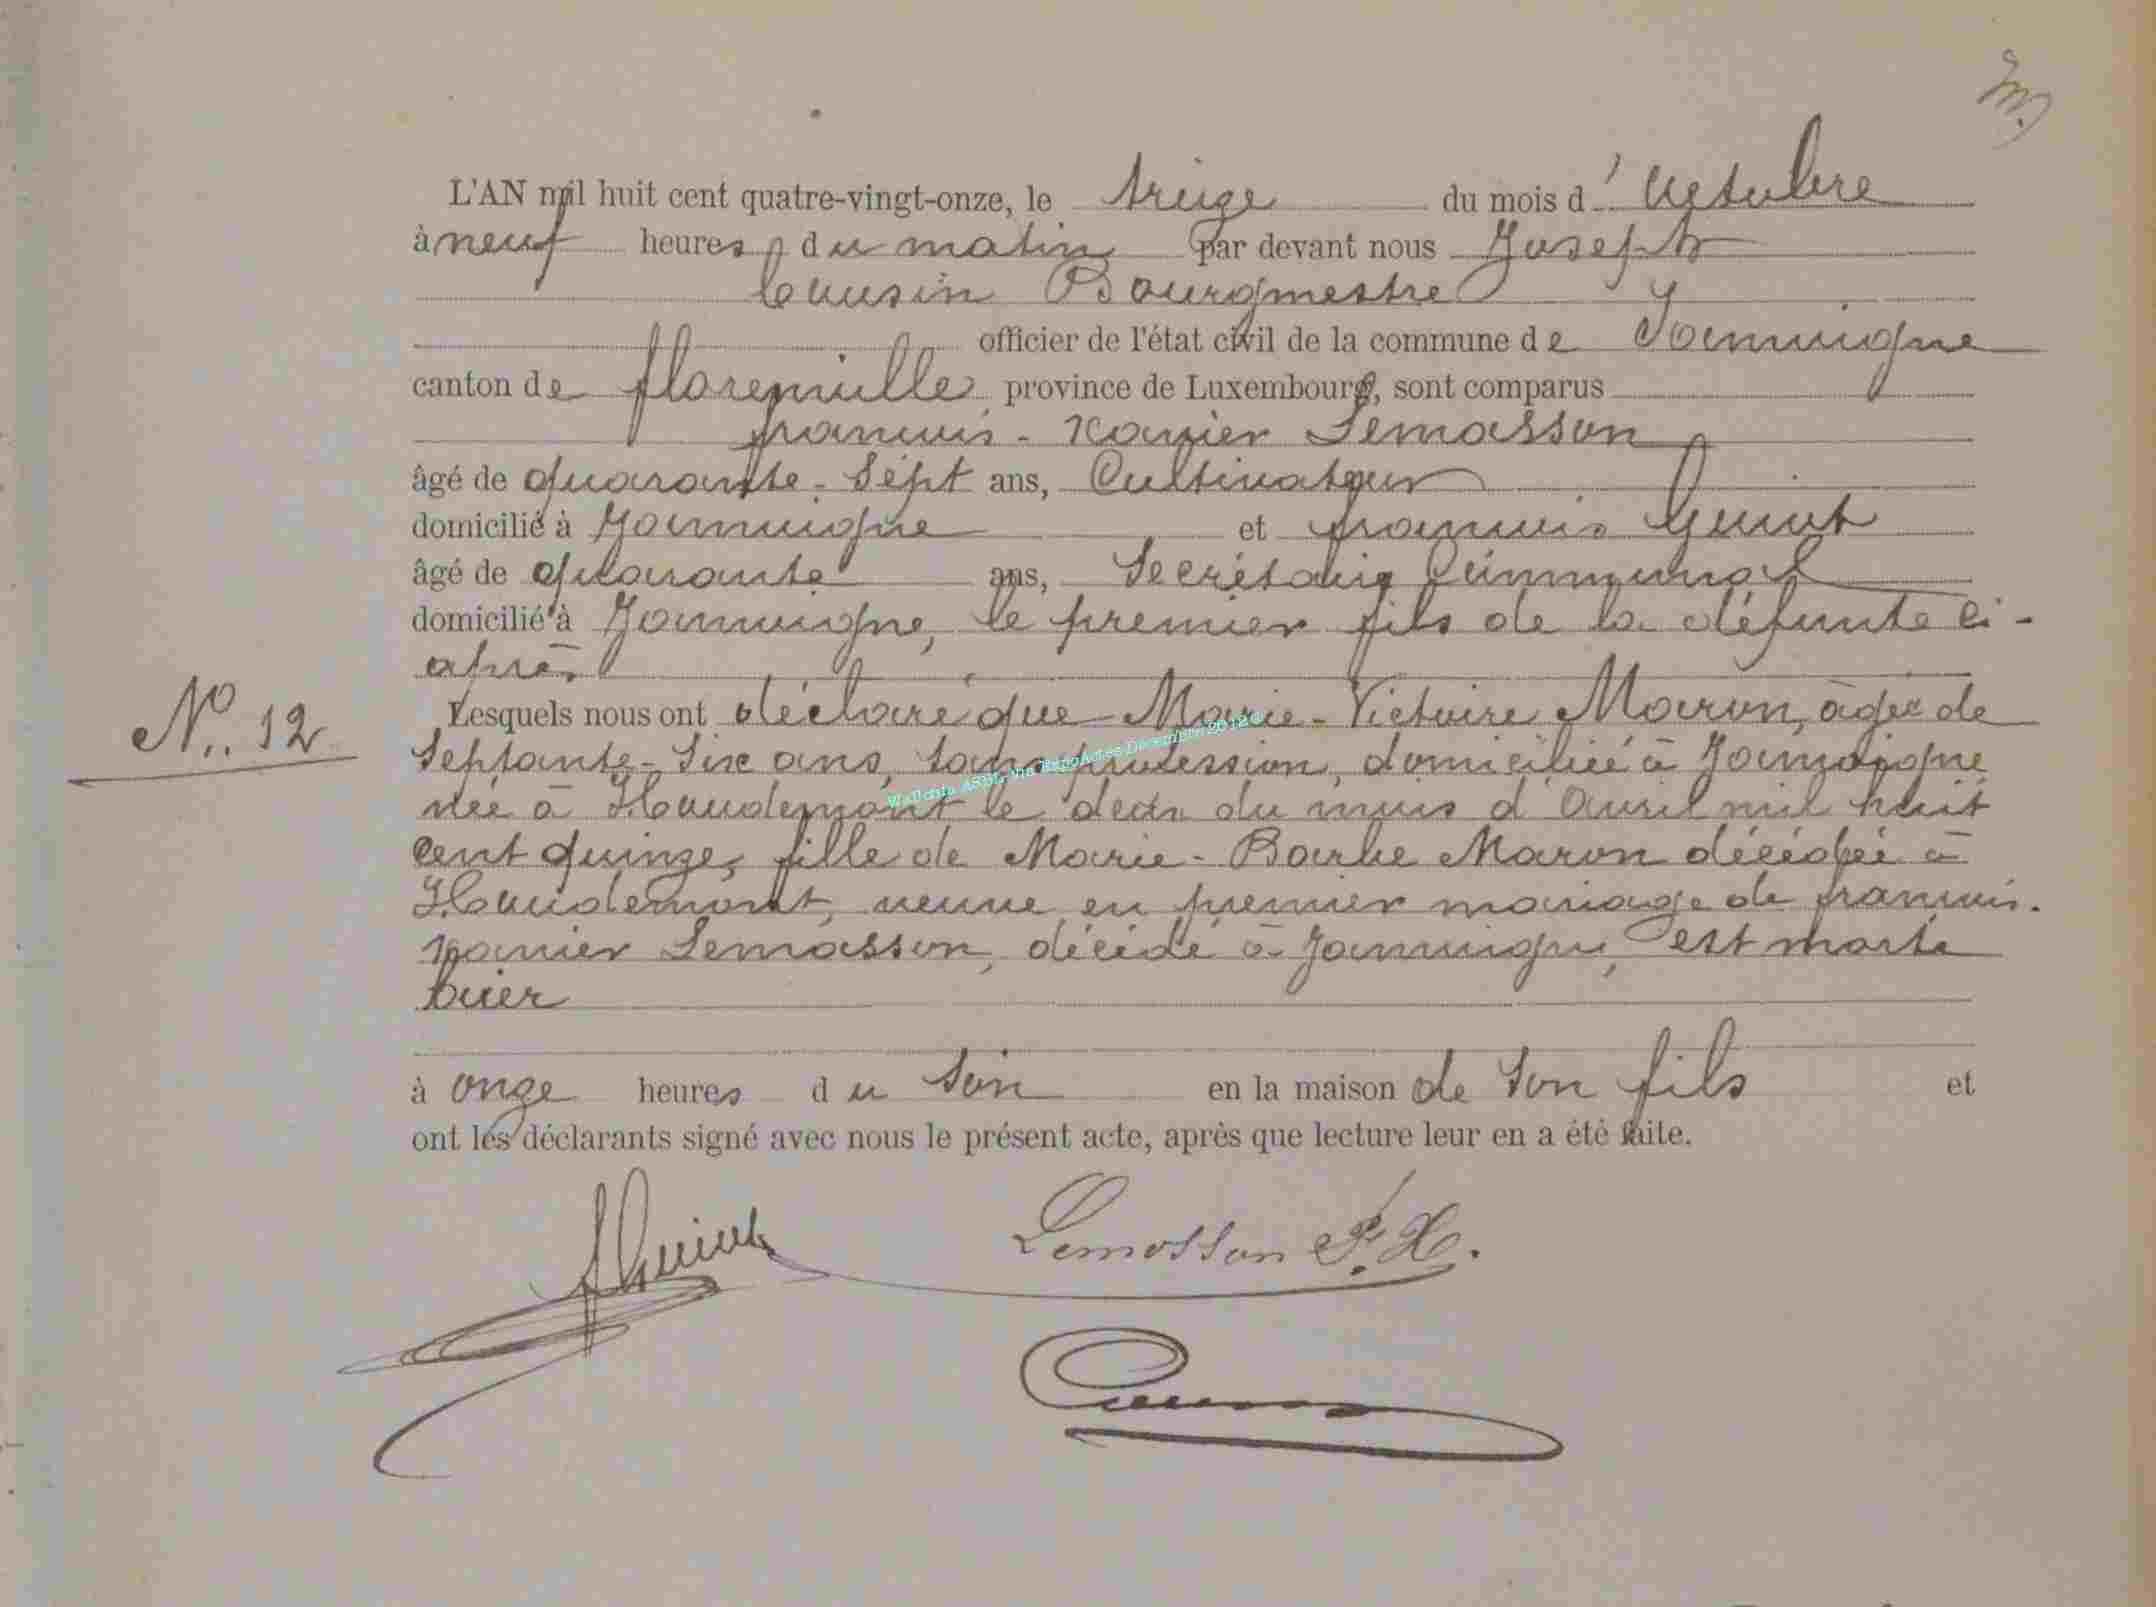 L'AN mil huit cent quatre-vingt-onze, le treize du mois d'Octobre
à neuf heures du matin par devant nous Joseph
Cousin Bourgmestre
officier de l'état civil de la commune de Jamoigne
canton de florenville province de Luxembourg, sont comparus
françois-Xavier Lemasson
âgé de quarante-Sept ans, Cultivateur
domicilié à Jamoigne et françois Guiot
âgé de quarante ans, Secrétaire Communal
domicilié à Jamoigne, le premier fils de la défunte ci-
après.
N°. 12
Lesquels nous ont déclaré que Marie-Victoire Maron, âgée de
Septante-Six ans, sans profession, domiciliée à Jamoigne
née à Houdemont le deux du mois d'Avril mil huit
cent quinze, fille de Marie-Barbe Maron décédée à
Houdemont, veuve en premier mariage de françois-
xavier Lemasson, décédé à Jamoigne, est morte
hier
à onze heures du soir en la maison de son fils et
ont les déclarants signé avec nous le présent acte, après que lecture leur en a été faite.
Wallonia ASBL Via ExpoActes Décembre 2012©
f Guiot
Lemasson F. X.
Cousin